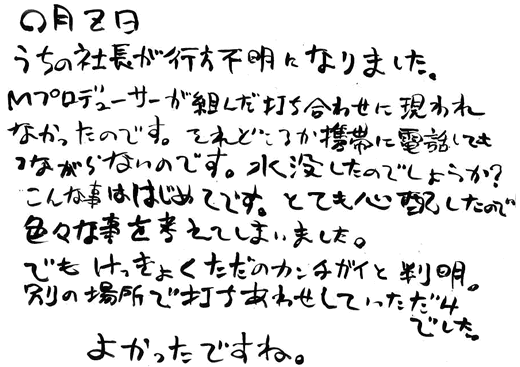 〇月Z日
うちの社長が行方不明になりました。
Mプロデューサーが組んだ打ち合わせに現われ
なかったのです。それどころか携帯に電話しても
つながらないのです。水没したのでしょうか?
こんな事ははじめてです。とても心配したので
色々な事を考えてしまいました。
でもけっきょくただのカンチガイと判明。
別の場所で打ちあわせしていただけ
でした。
よかったですね。